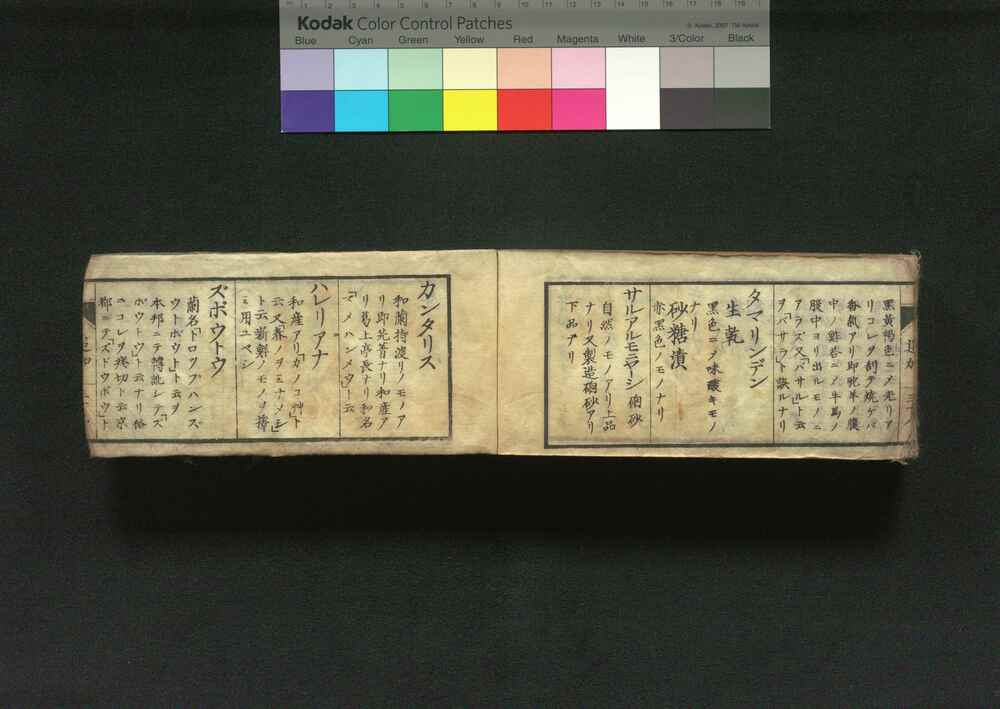 Kodak Color Control Patches
© Kodak, 2007 TM: Kodak
Blue Cyan Green Yellow Red Magenta White 3/Color Black
黒黄褐色ニメ光リア
リコレヲ刮テ焼ゲバ
香氣アリ即駝羊ノ腹
中ノ鮓荅ニノ牛馬ノ
腹中ヨリ出ルモノニ
アラズ又「バサル」ト云
ヲ「バサラ」ト訣ルナリ
タマリンデン
生乾
黒色ニメ味酸キモノ
ナリ
砂糖漬
赤黒色ノモノナリ
サルアルモニヤーシ 硇砂
自然ノモノアリ上品
ナリ又製造硇砂アリ
下品ナリ
カンタリス
和蘭持渡リノモノア
リ即芫菁ナリ和産ア
リ葛上亭長ナリ和名
「マメハンメウ」ト云
ハレリアナ
和産アリ「カノコ艸」ト
云又「春ノヲミナメシ」
ト云新鮮ノモノヲ擇
ミ用ユベシ
ズボウトウ
蘭名「ドロップハンズ
ウトホウ」ト云ヲ
本邦ニテ轉訛シ「ズ
ホウトウ」ト云ナリ俗
ニコレヲ痰切ト云京
都ニテ「ズドウボウ」ト